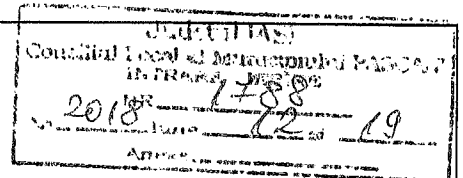 JUDEȚUL IAȘI
Consiliul Local al Municipiului PAȘCANI
INTRARE
NR. 1788
2018 Luna 12 zi 19
Anexe